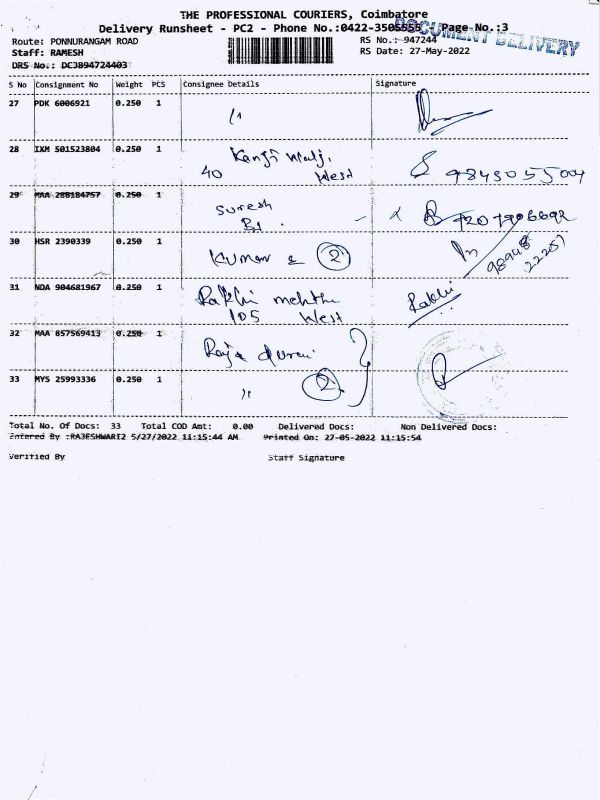 THE PROFESSIONAL COURIERS, Coimbatore
Delivery Runsheet - PC2 - Phone No.:0422-3505555 Page No.:3
DOCUMENT DELIVERY
Route: PONNURANGAM ROAD RS No.: 947244
Staff: RAMESH RS Date: 27-May-2022
DRS No.: DCJ894724403
S No Consignment No Weight PCS Consignee Details Signature
27 PDK 6006921 0.250 1 "
28 IXM 501523804 0.250 1 Kanji Malj.
40 West 9843055004
29 MAA 288184757 0.250 1 Suresh
30 HSR 2390339 0.250 1 Kumar & 2 98948
22257
31 NDA 904681967 0.250 1 Rakhi mehtha Rakhi
105 West
32 MAA 857569413 0.250 1 Raja durai
33 MYS 25993336 0.250 1 " 2
Total No. Of Docs: 33 Total COD Amt: 0.00 Delivered Docs: Non Delivered Docs:
Entered By :RAJESHWARI2 5/27/2022 11:15:44 AM Printed On: 27-05-2022 11:15:54
Verified By Staff Signature